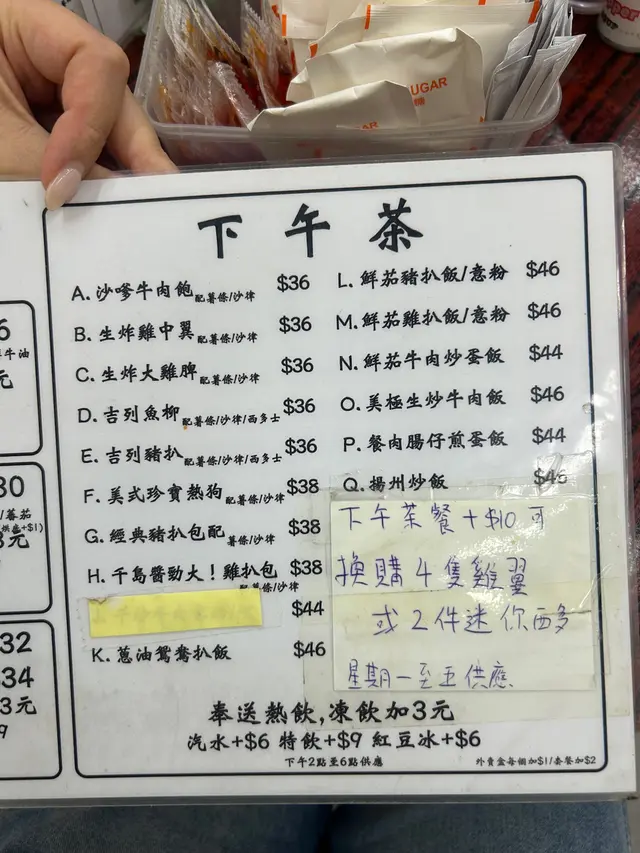 SUGAR
下午茶
A. 沙嗲牛肉飽配薯條/沙律 $36
B. 生炸雞中翼配薯條/沙律 $36
C. 生炸大雞髀配薯條/沙律 $36
D. 吉列魚柳配薯條/沙律/西多士 $36
E. 吉列豬扒配薯條/沙律/西多士 $36
F. 美式珍寶熱狗配薯條/沙律 $38
G. 經典豬扒包配薯條/沙律 $38
H. 千島醬勁大！雞扒包配薯條/沙律 $38
$44
K. 蔥油鴛鴦扒飯 $46
L. 鮮茄豬扒飯/意粉 $46
M. 鮮茄雞扒飯/意粉 $46
N. 鮮茄牛肉炒蛋飯 $44
O. 美極生炒牛肉飯 $46
P. 餐肉腸仔煎蛋飯 $44
Q. 揚州炒飯 $46
下午茶餐+$10可
換購4隻雞翼
或2件迷你西多
星期一至五供應
奉送熱飲,凍飲加3元
汽水+$6 特飲+$9 紅豆冰+$6
下午2點至6點供應
外賣盒每個加$1/套餐加$2
牛油
元
/蕃茄
+$1)
3元
32
34
3元